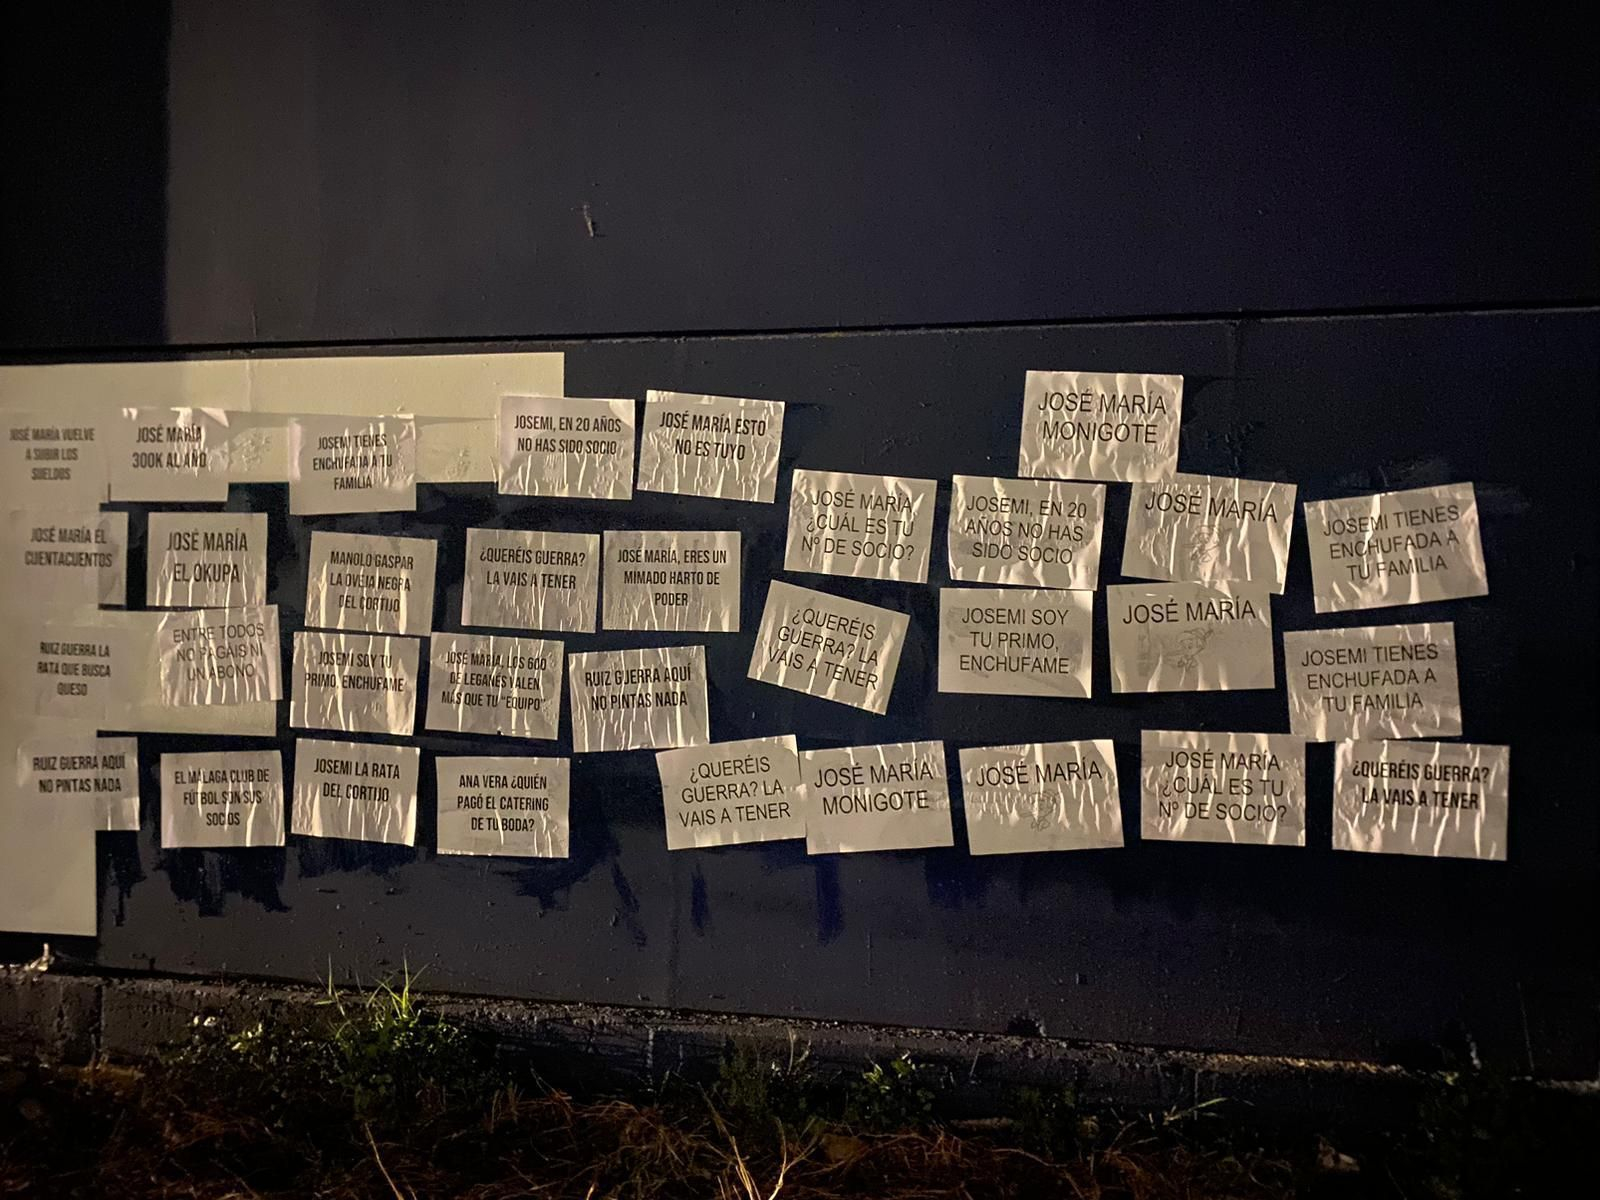 JOSÉ MARÍA VUELVE
A SUBIR LOS
SUELDOS
JOSÉ MARÍA
300K AL AÑO
JOSEMI TIENES
ENCHUFADA A TU
FAMILIA
JOSEMI, EN 20 AÑOS
NO HAS SIDO SOCIO
JOSÉ MARÍA ESTO
NO ES TUYO
JOSÉ MARÍA
MONIGOTE
JOSÉ MARÍA EL
CUENTACUENTOS
JOSÉ MARÍA
EL OKUPA
MANOLO GASPAR
LA OVEJA NEGRA
DEL CORTIJO
¿QUERÉIS GUERRA?
LA VAIS A TENER
JOSÉ MARÍA, ERES UN
MIMADO HARTO DE
PODER
JOSÉ MARÍA,
¿CUÁL ES TU
Nº DE SOCIO?
JOSEMI, EN 20
AÑOS NO HAS
SIDO SOCIO
JOSÉ MARÍA
JOSEMI TIENES
ENCHUFADA A
TU FAMILIA
RUIZ GUERRA LA
RATA QUE BUSCA
QUESO
ENTRE TODOS
NO PAGÁIS NI
UN ABONO
JOSEMI SOY TU
PRIMO, ENCHUFAME
JOSÉ MARÍA, LOS 600
DE LEGANÉS VALEN
MÁS QUE TU "EQUIPO"
RUIZ GUERRA AQUÍ
NO PINTAS NADA
¿QUERÉIS
GUERRA? LA
VAIS A TENER
JOSEMI SOY
TU PRIMO,
ENCHUFAME
JOSÉ MARÍA
JOSEMI TIENES
ENCHUFADA A
TU FAMILIA
RUIZ GUERRA AQUÍ
NO PINTAS NADA
EL MÁLAGA CLUB DE
FÚTBOL SON SUS
SOCIOS
JOSEMI LA RATA
DEL CORTIJO
ANA VERA ¿QUIÉN
PAGÓ EL CATERING
DE TU BODA?
¿QUERÉIS
GUERRA? LA
VAIS A TENER
JOSÉ MARÍA
MONIGOTE
JOSÉ MARÍA
JOSÉ MARÍA
¿CUÁL ES TU
Nº DE SOCIO?
¿QUERÉIS GUERRA?
LA VAIS A TENER